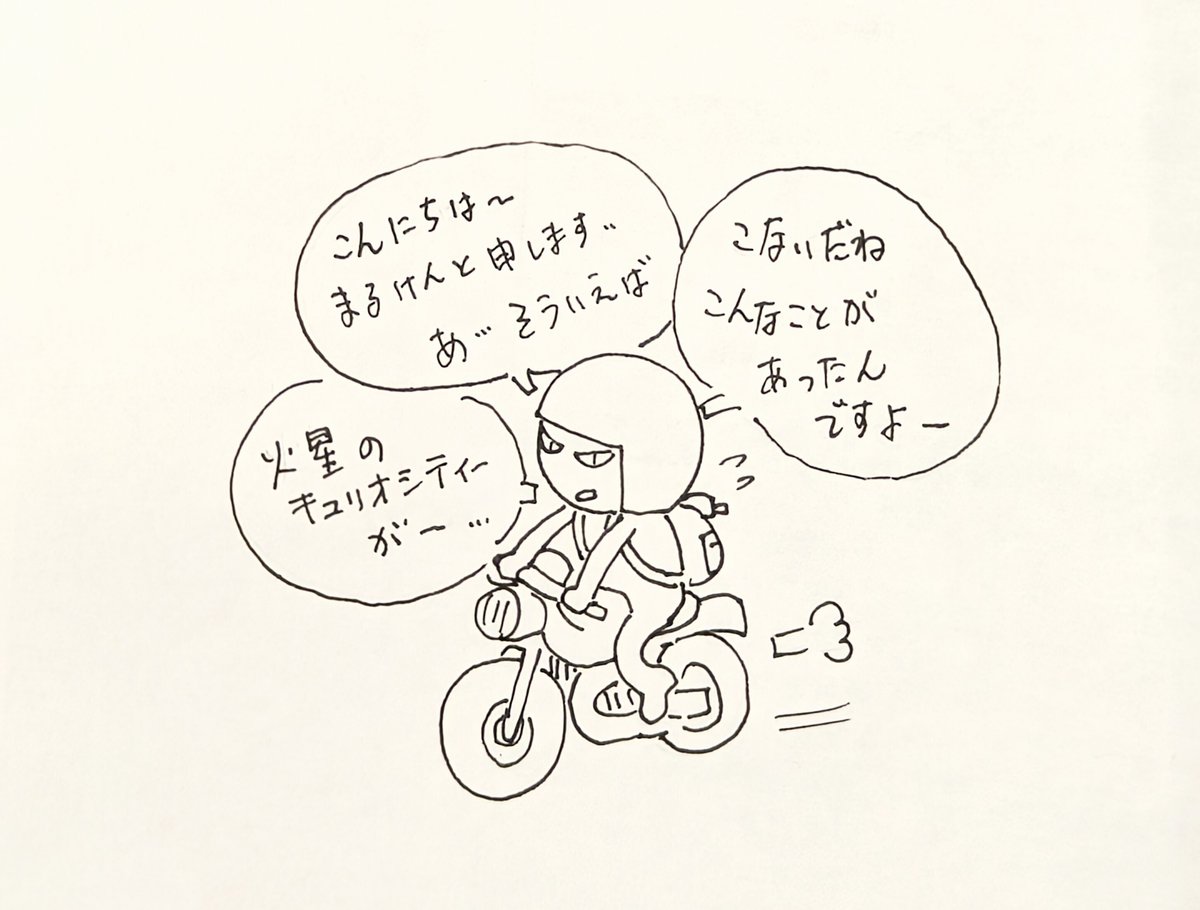 こんにちは〜
まるけんと申します..
あ… そういえば
こないだね
こんなことが
あったん
ですよー
火星の
キュリオシティー
が〜…